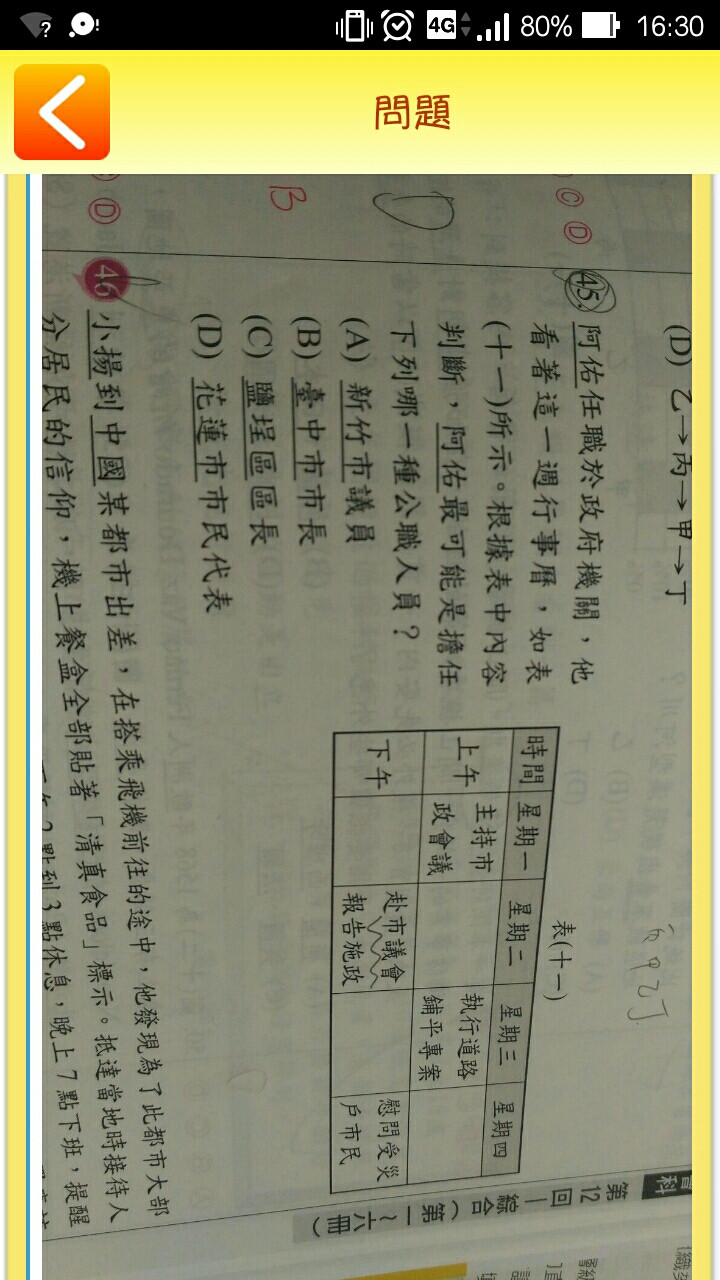 4G 80% 16:30
問題
(D) 乙→丙→甲→丁
C D
45. 阿佑任職於政府機關，他
看著這一週行事曆，如表
(十一)所示。根據表中內容
判斷，阿佑最可能是擔任
下列哪一種公職人員？
(A) 新竹市議員
(B) 臺中市市長
(C) 鹽埕區區長
(D) 花蓮市市民代表
B
表(十一)
時間 星期一 星期二 星期三 星期四
上午 主持市政會議 執行道路鋪平專案
下午 赴市議會報告施政 慰問受災戶市民
D
46 小揚到中國某都市出差，在搭乘飛機前往的途中，他發現為了此都市大部
分居民的信仰，機上餐盒全部貼著「清真食品」標示。抵達當地時接待人
2點到3點休息，晚上7點下班，提醒
第12回 綜合(第一～六冊)